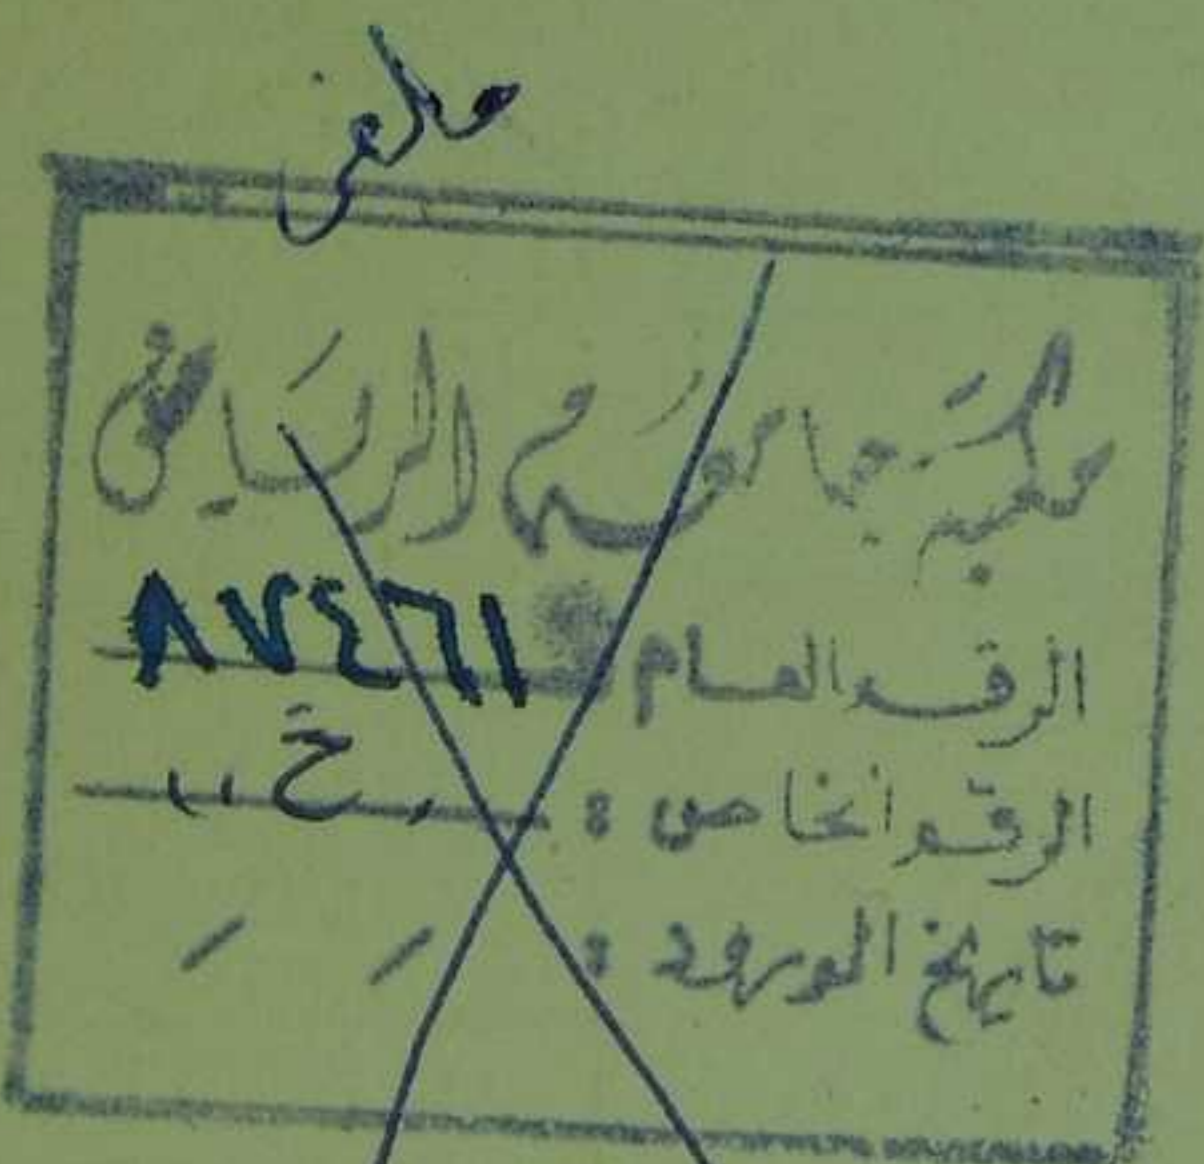 ملغى
مكتبة جامعة الرياض
الرقم العام ٨٧٤٦١
الرقم الخاص :
تاريخ الورود : / /